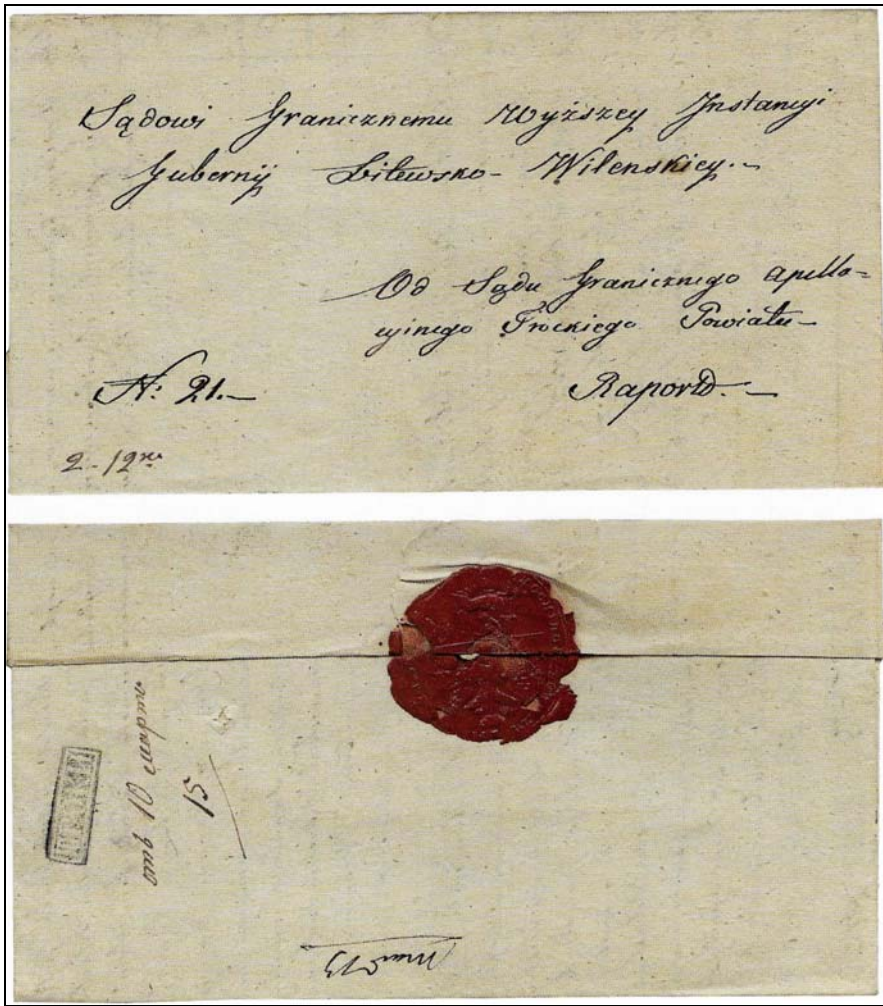 Sądowi Granicznemu Wyższey Instancyi
Gubernij Litewsko-Wilenskiey.-
Od Sądu Granicznego apella=
cyinego Trockiego Powiatu-
N: 21.-
Raport.-
2-12
отъ 10 марта
15